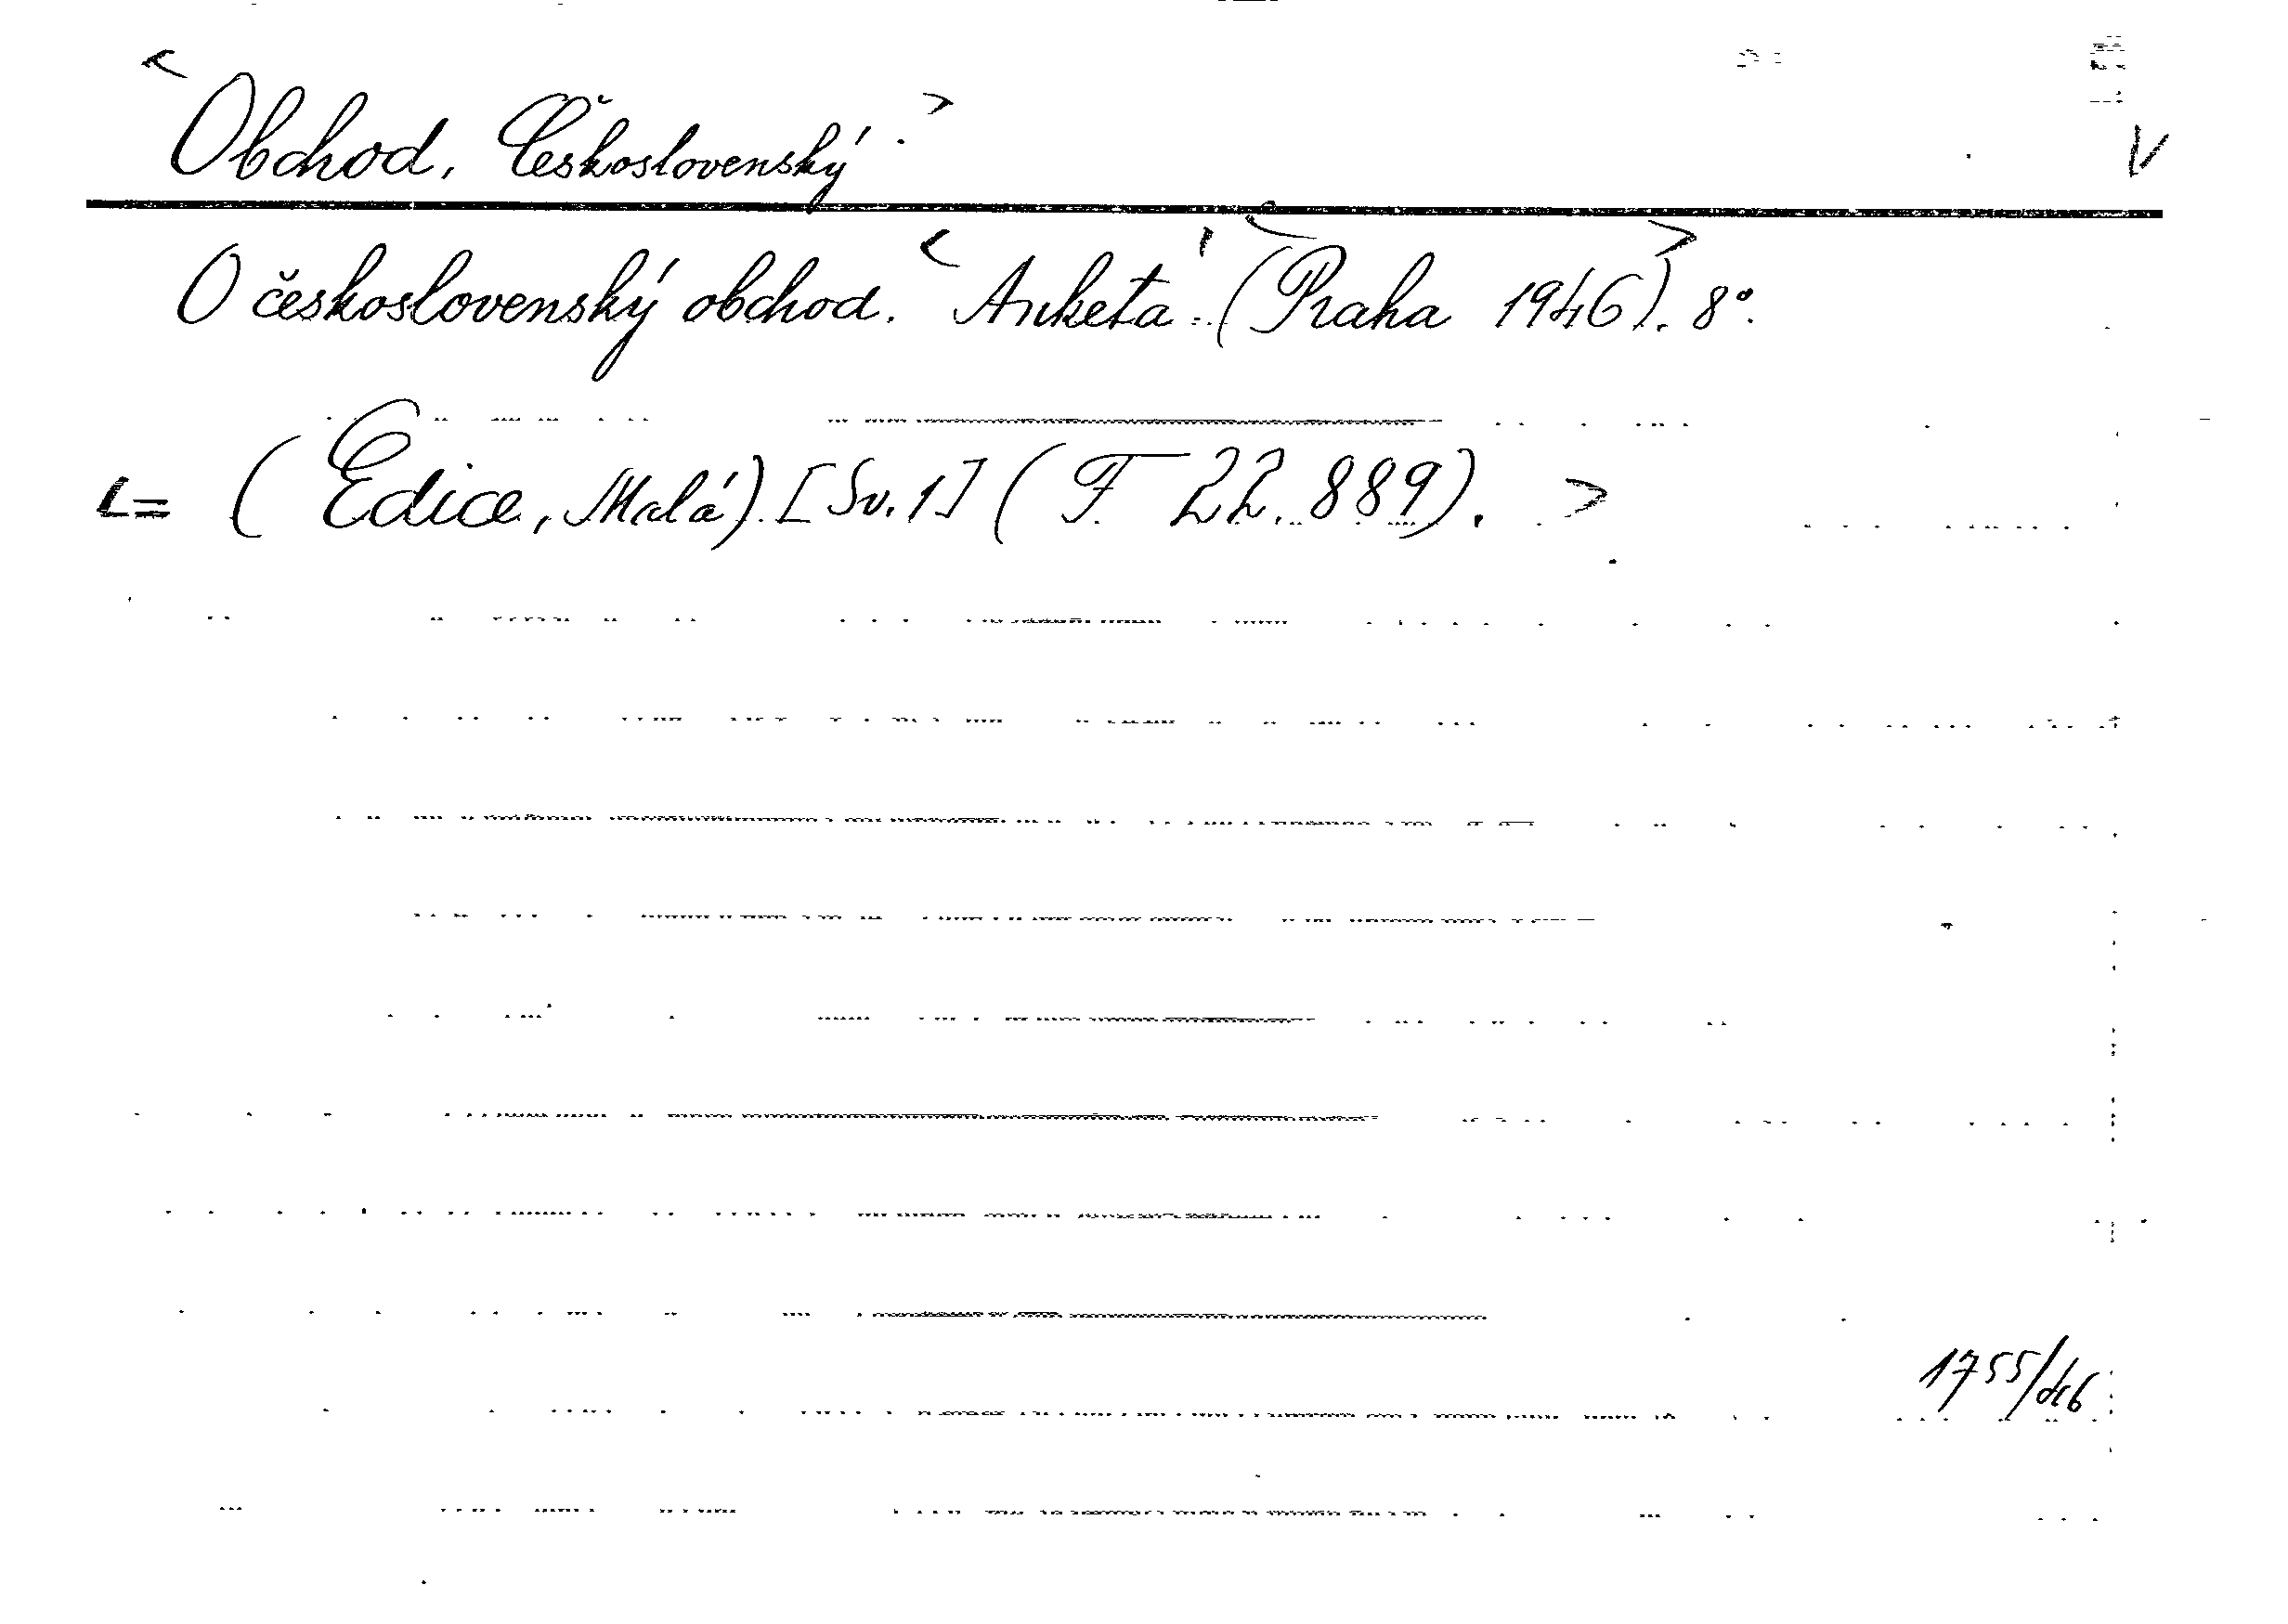 <Obchod, Československý.>
V
O československý obchod. <Anketa.> <(Praha 1946).> 8°.
<= (Edice, Malá). [Sv. 1] (F 22.889). >
1755/